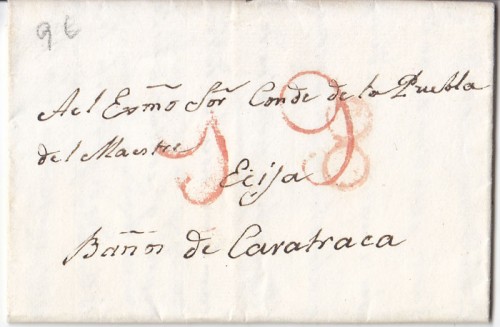 9 €
Al Exmo Sor Conde de la Puebla
del Maestre
Ecija
Baños de Caratraca